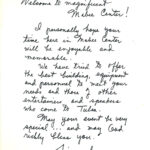 Welcome to magnificent
Mabee Center!
I personally hope your
time here in Mabee Center
will be enjoyable and
memorable.
We have tried to offer
the best building, equipment
and personnel to meet your
needs and those of other
entertainers and speakers
who come to Tulsa.
May your event be very
special... and may God
richly bless you.